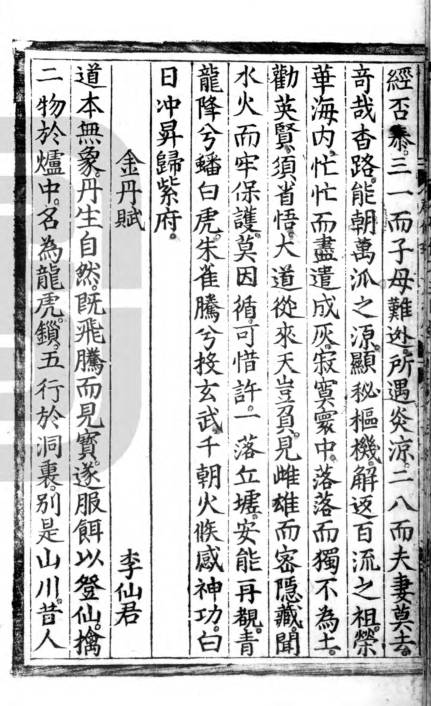 經否泰。三一而子母難迯。所遇炎涼。二八而夫妻莫去。
竒哉杳路。能朝萬泒之源。顯秘樞機。解返百流之祖。榮
華海内。忙忙而盡遣成灰。寂寞寰中。落落而獨不為土。
勸英賢。須省悟。大道從來天豈負。見雌雄而密隱藏。聞
水火而牢保護。莫因循。可惜許。一落丘墟。安能再覩。青
龍降兮蟠白虎。朱雀騰兮招玄武。千朝火候感神功。白
日冲昇歸紫府。
金丹賦
李仙君
道本無象。丹生自然。既飛騰而見寳。遂服餌以登仙。擒
二物於爐中。名為龍虎。鎖五行於洞裏。別是山川。昔人